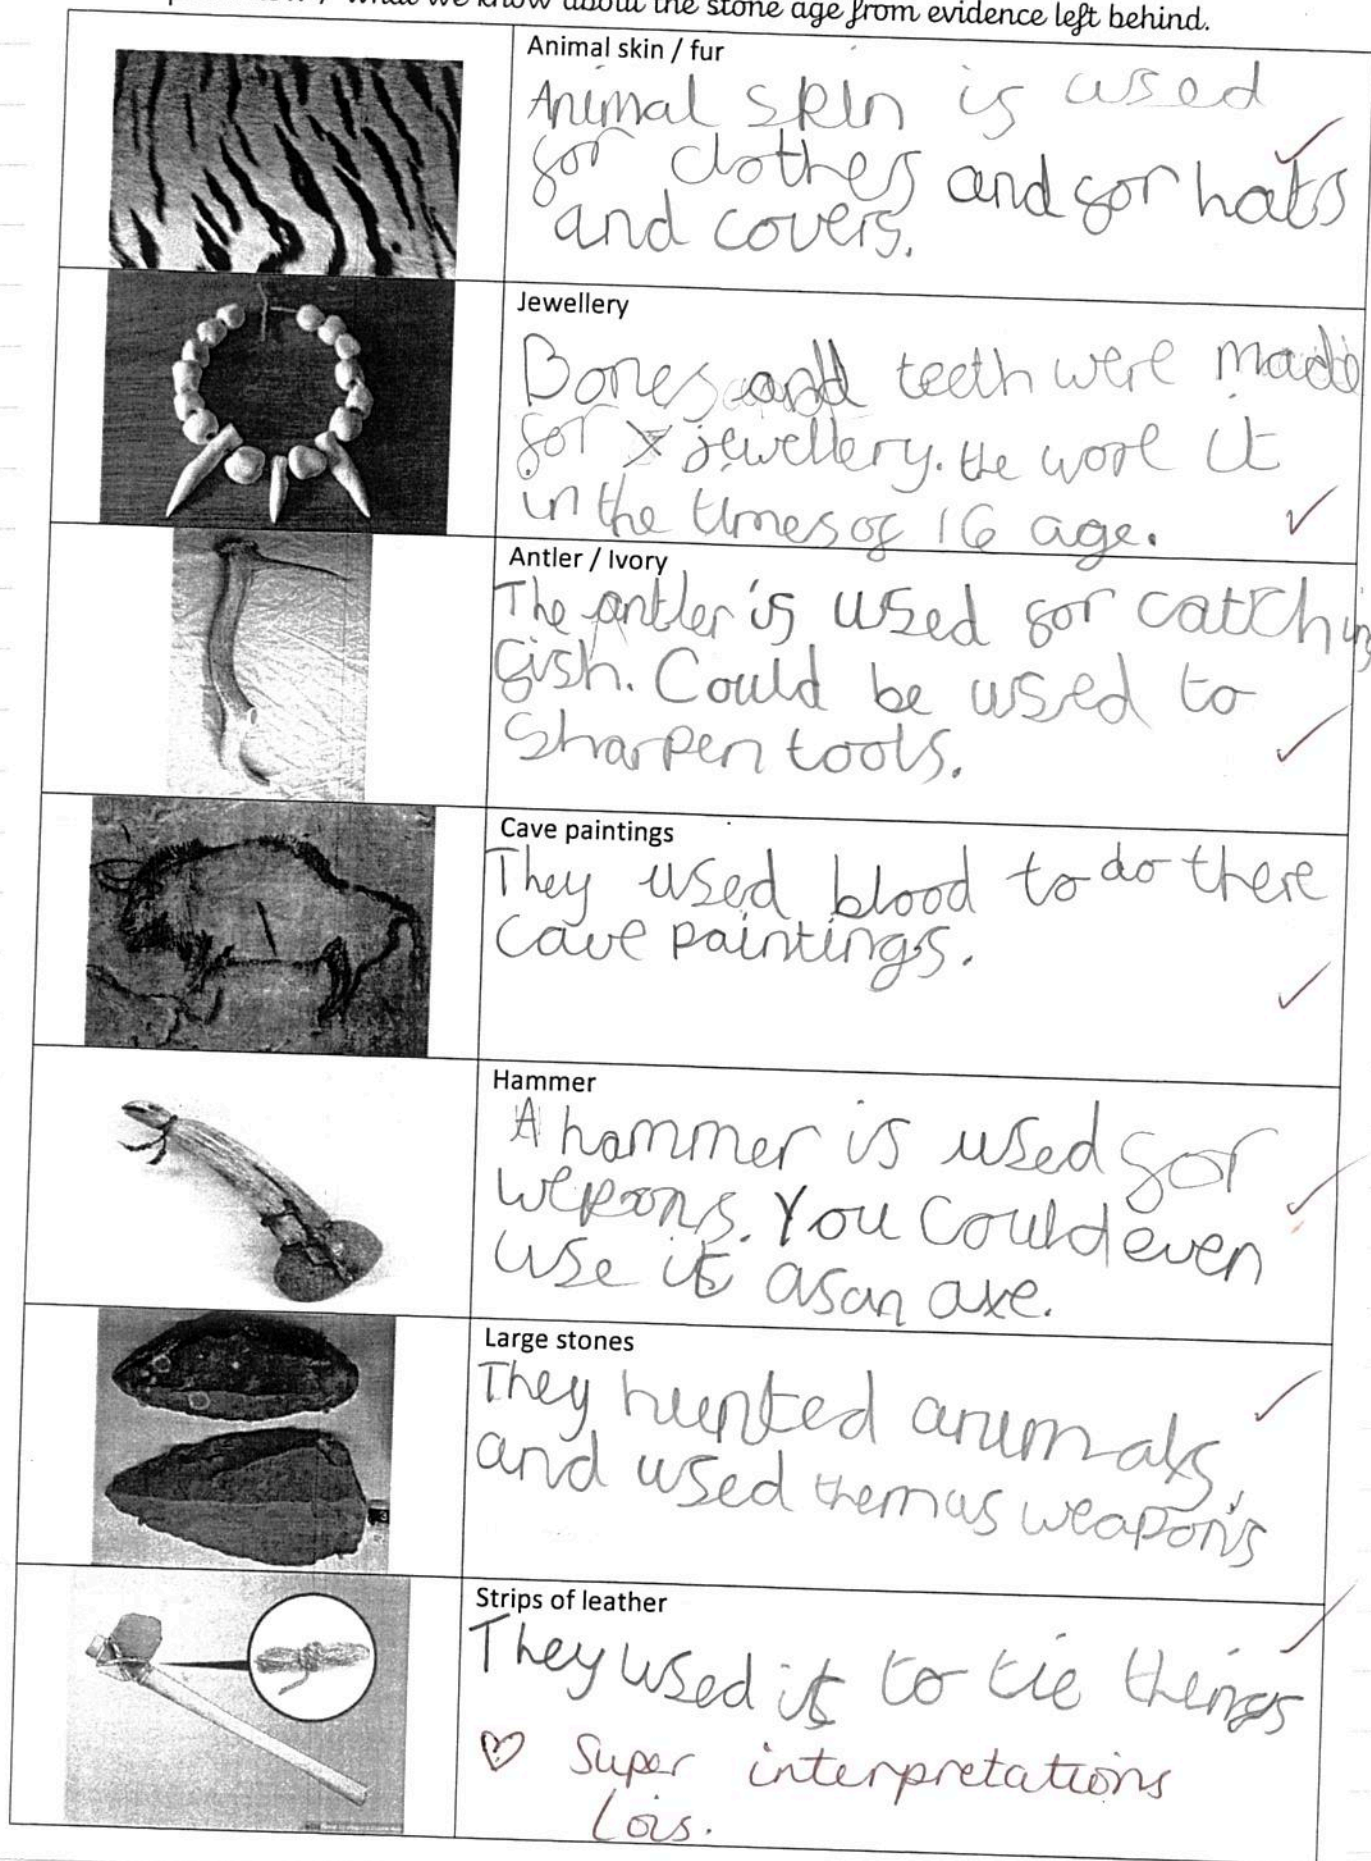 what we know about the stone age from evidence left behind.
Animal skin / fur
Animal skin is used
for clothes and for hats
and covers.
Jewellery
Bones and teeth were made
for x jewellery. He wore it
in the times of 16 age.
Antler / Ivory
The antler is used for catching
fish. Could be used to
Sharpen tools.
Cave paintings
They used blood to do there
Cave paintings.
Hammer
A hammer is used for
wepons. You could even
use it as an axe.
Large stones
They hunted animals,
and used them as weapons
Strips of leather
They used it to tie things
♡ Super interpretations
Lois.